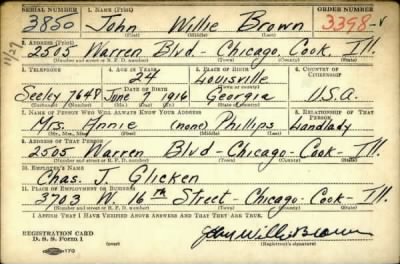 SERIAL NUMBER 1. NAME (Print) ORDER NUMBER
3850 John Willie Brown 3398
(First) (Middle) (Last)
2. ADDRESS (Print)
11/27
2505 Warren Blvd - Chicago, Cook, Ill.
(Number and street or R. F. D. number) (Town) (County) (State)
3. TELEPHONE 4. AGE IN YEARS 5. PLACE OF BIRTH 6. COUNTRY OF CITIZENSHIP
24 Louisville
DATE OF BIRTH (Town or county)
Seeley 7648 June 7, 1916 Georgia U.S.A.
(Exchange) (Number) (Mo.) (Day) (Yr.) (State or country)
7. NAME OF PERSON WHO WILL ALWAYS KNOW YOUR ADDRESS 8. RELATIONSHIP OF THAT PERSON
Mrs. Annie (none) Phillips Landlady
(Mr., Mrs., Miss) (First) (Middle) (Last)
9. ADDRESS OF THAT PERSON
2505 Warren Blvd - Chicago - Cook - Ill.
(Number and street or R. F. D. number) (Town) (County) (State)
10. EMPLOYER'S NAME
Chas. J. Glicken
11. PLACE OF EMPLOYMENT OR BUSINESS
3703 W. 16th Street - Chicago - Cook - Ill.
(Number and street or R. F. D. number) (Town) (County) (State)
I AFFIRM THAT I HAVE VERIFIED ABOVE ANSWERS AND THAT THEY ARE TRUE.
REGISTRATION CARD
D. S. S. Form 1 John Willie Brown
(Registrant's signature)